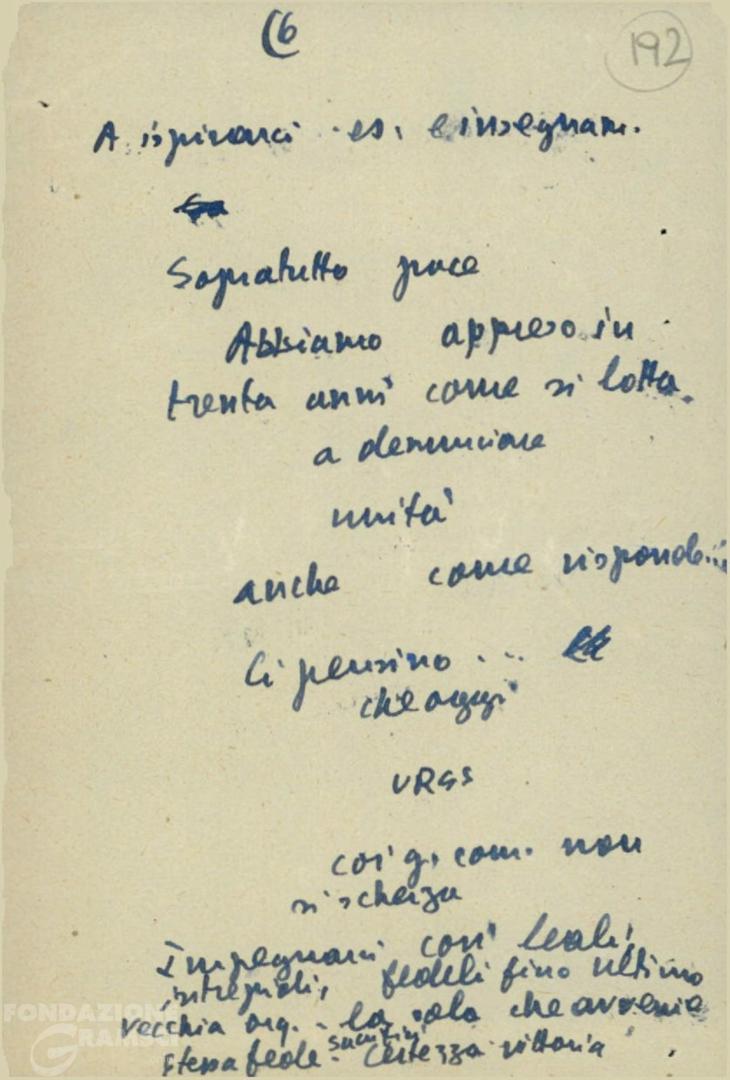 (6
192
A ispirarci es. e insegnam.
Sopratutto pace
Abbiamo appreso in
trenta anni come si lotta
a denunciare
unità
anche come risponde...
Ci pensino ...
che oggi
URSS
coi g. com. non
si scherza
Impegnarci così leali,
intrepidi, fedeli fino ultimo
vecchia org. - la sola che avvenia
sacrifici
stessa fede - certezza vittoria
FONDAZIONE
GRAMSCI